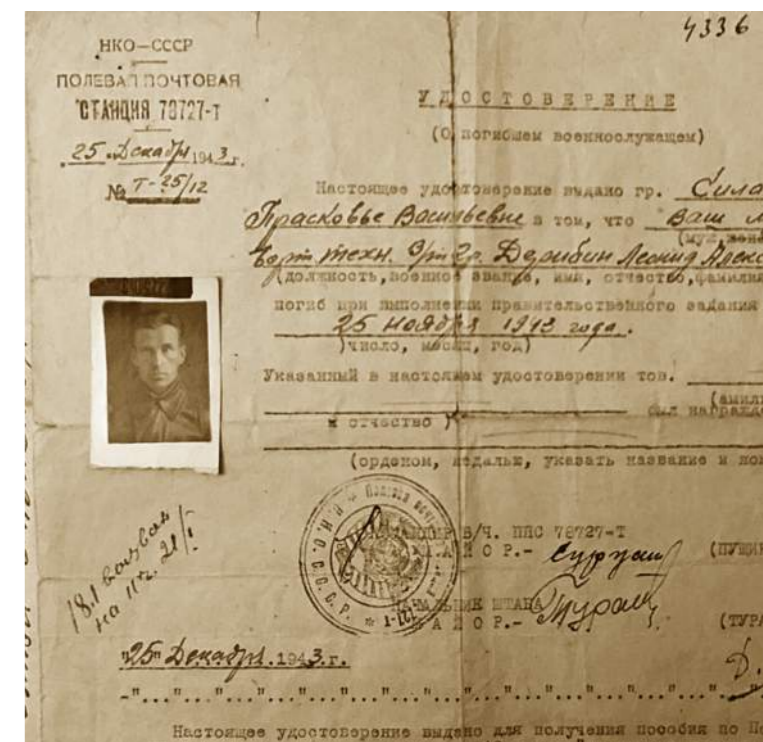 4336
НКО—СССР
ПОЛЕВАЯ ПОЧТОВАЯ
СТАНЦИЯ 78727-т
"25" Декабря 1943 г.
№ Т-25/12
УДОСТОВЕРЕНИЕ
(О погибшем военнослужащем)
Настоящее удостоверение выдано гр. Сила
Прасковье Васильевне в том, что Ваш
(муж, жена
Борт техн. Дерибин Леонид Алекс
(должность, военное звание, имя, отчество, фамилия
погиб при выполнении правительственного задания
25 ноября 1943 года.
(число, месяц, год)
Указанный в настоящем удостоверении тов.
(фамили
был награжде
и отчество)
(орденом, медалью, указать название и
В/Ч. ППС 78727-Т
МАЙОР.- (ПУШИН
НАЧАЛЬНИК ШТАБА
МАЙОР.- (ТУРА
Полевая
Н.К.О. С.С.С.Р.
18.1 вызван
на 11 ч. 21/I
"25" Декабря 1943 г.
Настоящее удостоверение выдано для получения пособия по